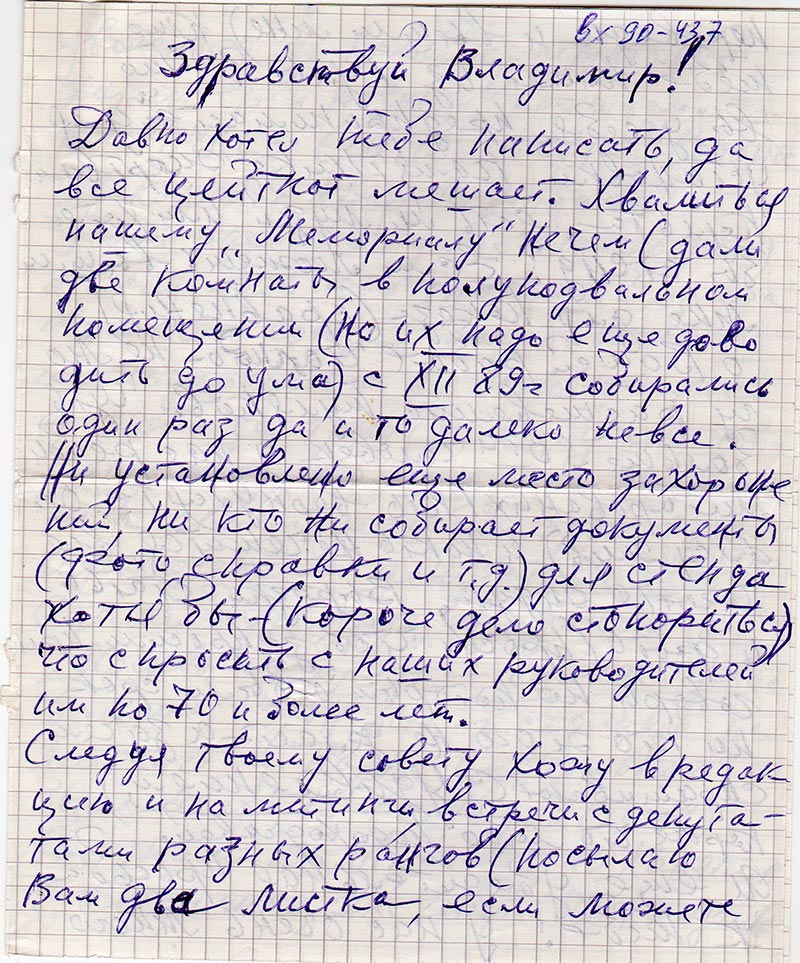 вх 90-437
Здравствуй Владимир!
Давно хотел тебе написать, да
все цейтнот мешает. Хвалиться
нашему „Мемориалу" нечем (дали
две комнаты в полуподвальном
помещении (но их надо еще дово
дить до ума) с XII 89г собирались
один раз да и то далеко невсе.
Ни установлено еще место захороне
ний, ни кто ни собирает документы
(фото справки и т.д.) для стенда
хотя бы - (короче дело стопориться)
что спросить с наших руководителей
им по 70 и более лет.
Следуя твоему совету хожу в редак
цию и на митинги, встречи с депута-
тами разных рангов (посылаю
Вам два листка, если можете